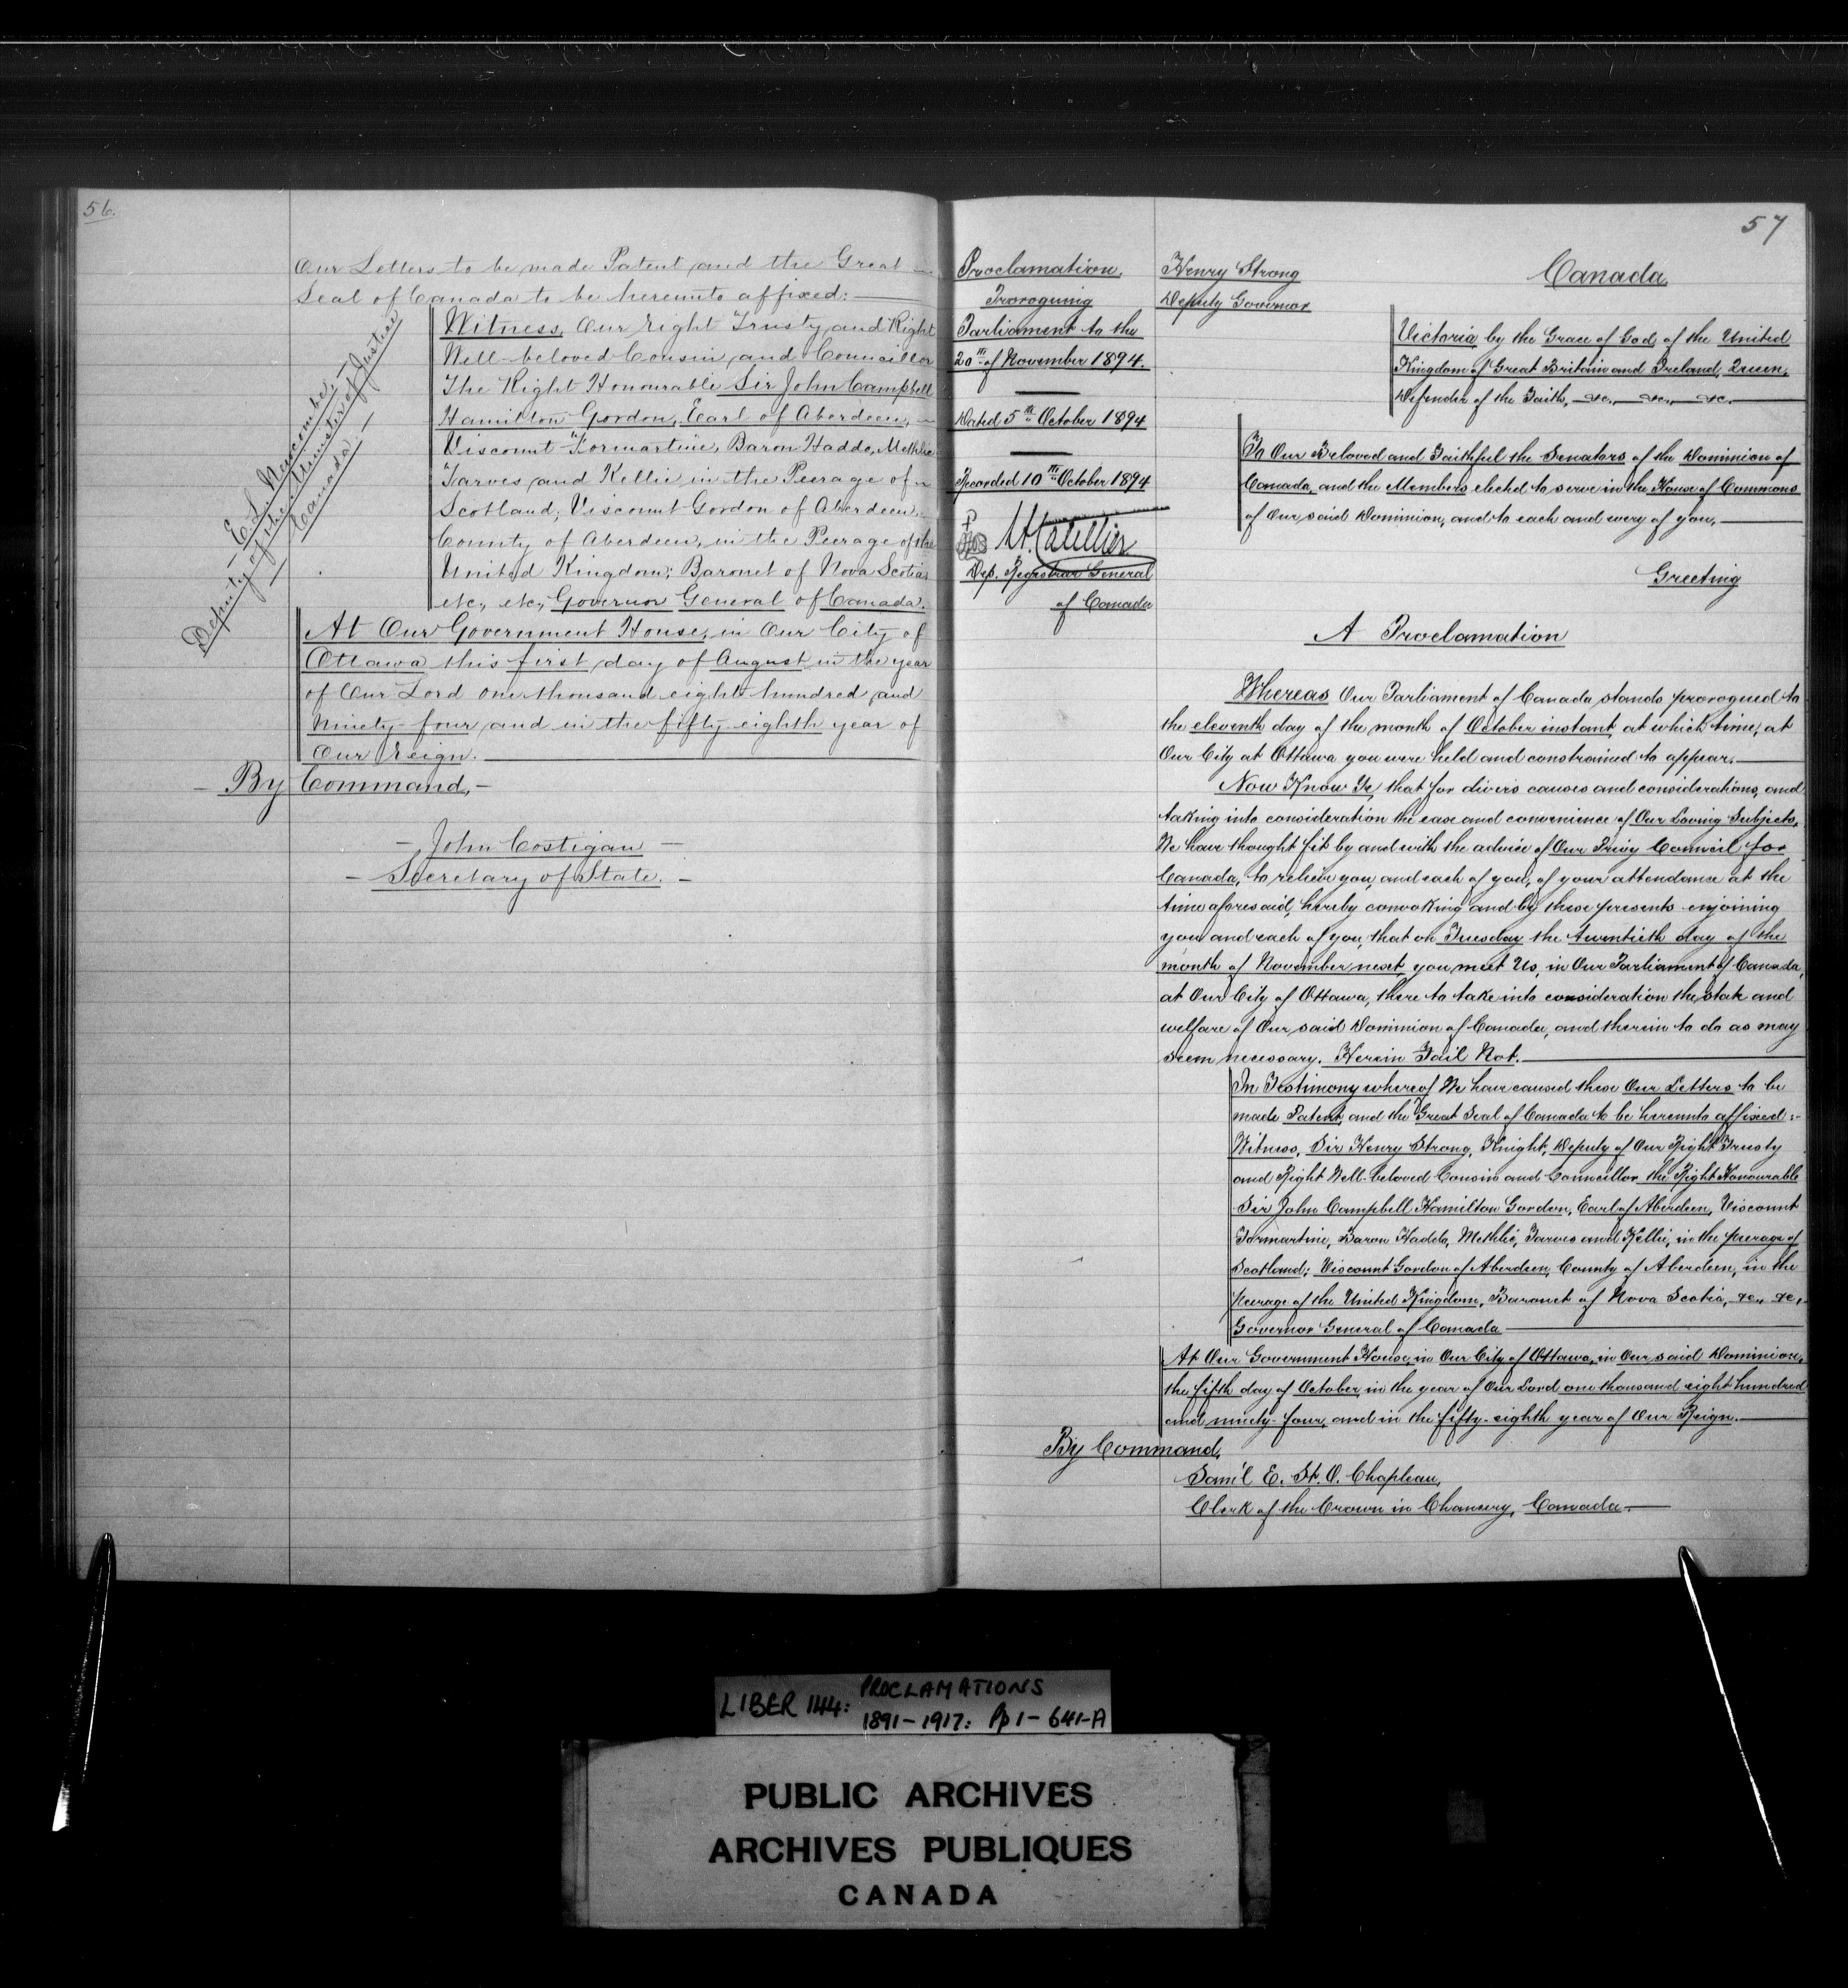 56.
Our Letters to be made Patent and the Great
Seal of Canada to be hereunto affixed:
Witness, Our Right Trusty and Right
Well-beloved Cousin and Councillor
The Right Honourable Sir John Campbell
Hamilton-Gordon, Earl of Aberdeen,
Viscount Formartine, Baron Haddo, Methlic
Tarves and Kellie in the Peerage of
Scotland; Viscount Gordon of Aberdeen,
County of Aberdeen, in the Peerage of the
United Kingdom; Baronet of Nova Scotia
etc., etc., Governor General of Canada.
At Our Government House, in Our City of
Ottawa this first day of August in the year
of Our Lord one thousand eight hundred and
Ninety-four and in the fifty eighth year of
Our Reign.
By Command,
John Costigan
Secretary of State.
E. L. Newcombe,
Deputy of the Minister of Justice
Canada
57
Proclamation,
Proroguing
Parliament to the
20th of November 1894.
Dated 5th October 1894
Recorded 10th October 1894
Dep. Registrar General
of Canada
Henry Strong
Deputy Governor
Canada
Victoria by the Grace of God of the United
Kingdom of Great Britain and Ireland, Queen,
Defender of the Faith, &c., &c., &c.
To Our Beloved and Faithful the Senators of the Dominion of
Canada, and the Members elected to serve in the House of Commons
of Our said Dominion, and to each and every of you,
Greeting
A Proclamation
Whereas Our Parliament of Canada stands prorogued to
the eleventh day of the month of October instant, at which time, at
Our City at Ottawa you were held and constrained to appear.
Now Know Ye, that for divers causes and considerations, and
taking into consideration the ease and convenience of Our Loving Subjects,
We have thought fit by and with the advice of Our Privy Council for
Canada, to relieve you, and each of you, of your attendance at the
time aforesaid, hereby convoking and by these presents enjoining
you and each of you, that on Tuesday the twentieth day of the
month of November next, you meet Us, in Our Parliament of Canada,
at Our City of Ottawa, there to take into consideration the state and
welfare of Our said Dominion of Canada, and therein to do as may
seem necessary. Herein Fail Not.
In Testimony whereof We have caused these Our Letters to be
made Patent, and the Great Seal of Canada to be hereunto affixed:-
Witness, Sir Henry Strong, Knight, Deputy of Our Right Trusty
and Right Well-beloved Cousin and Councillor the Right Honourable
Sir John Campbell Hamilton Gordon, Earl of Aberdeen, Viscount
Formartine, Baron Haddo, Methlic, Tarves and Kellie, in the peerage of
Scotland; Viscount Gordon of Aberdeen, County of Aberdeen, in the
Peerage of the United Kingdom, Baronet of Nova Scotia, &c., &c.,
Governor General of Canada
At Our Government House, in Our City of Ottawa, in Our said Dominion,
the fifth day of October, in the year of Our Lord one thousand eight hundred
and ninety-four, and in the fifty-eighth year of Our Reign.
By Command,
Saml E. St. O. Chapleau,
Clerk of the Crown in Chancery, Canada.
LIBER 144: PROCLAMATIONS
1891-1917: Pp 1-641-A
PUBLIC ARCHIVES
ARCHIVES PUBLIQUES
CANADA